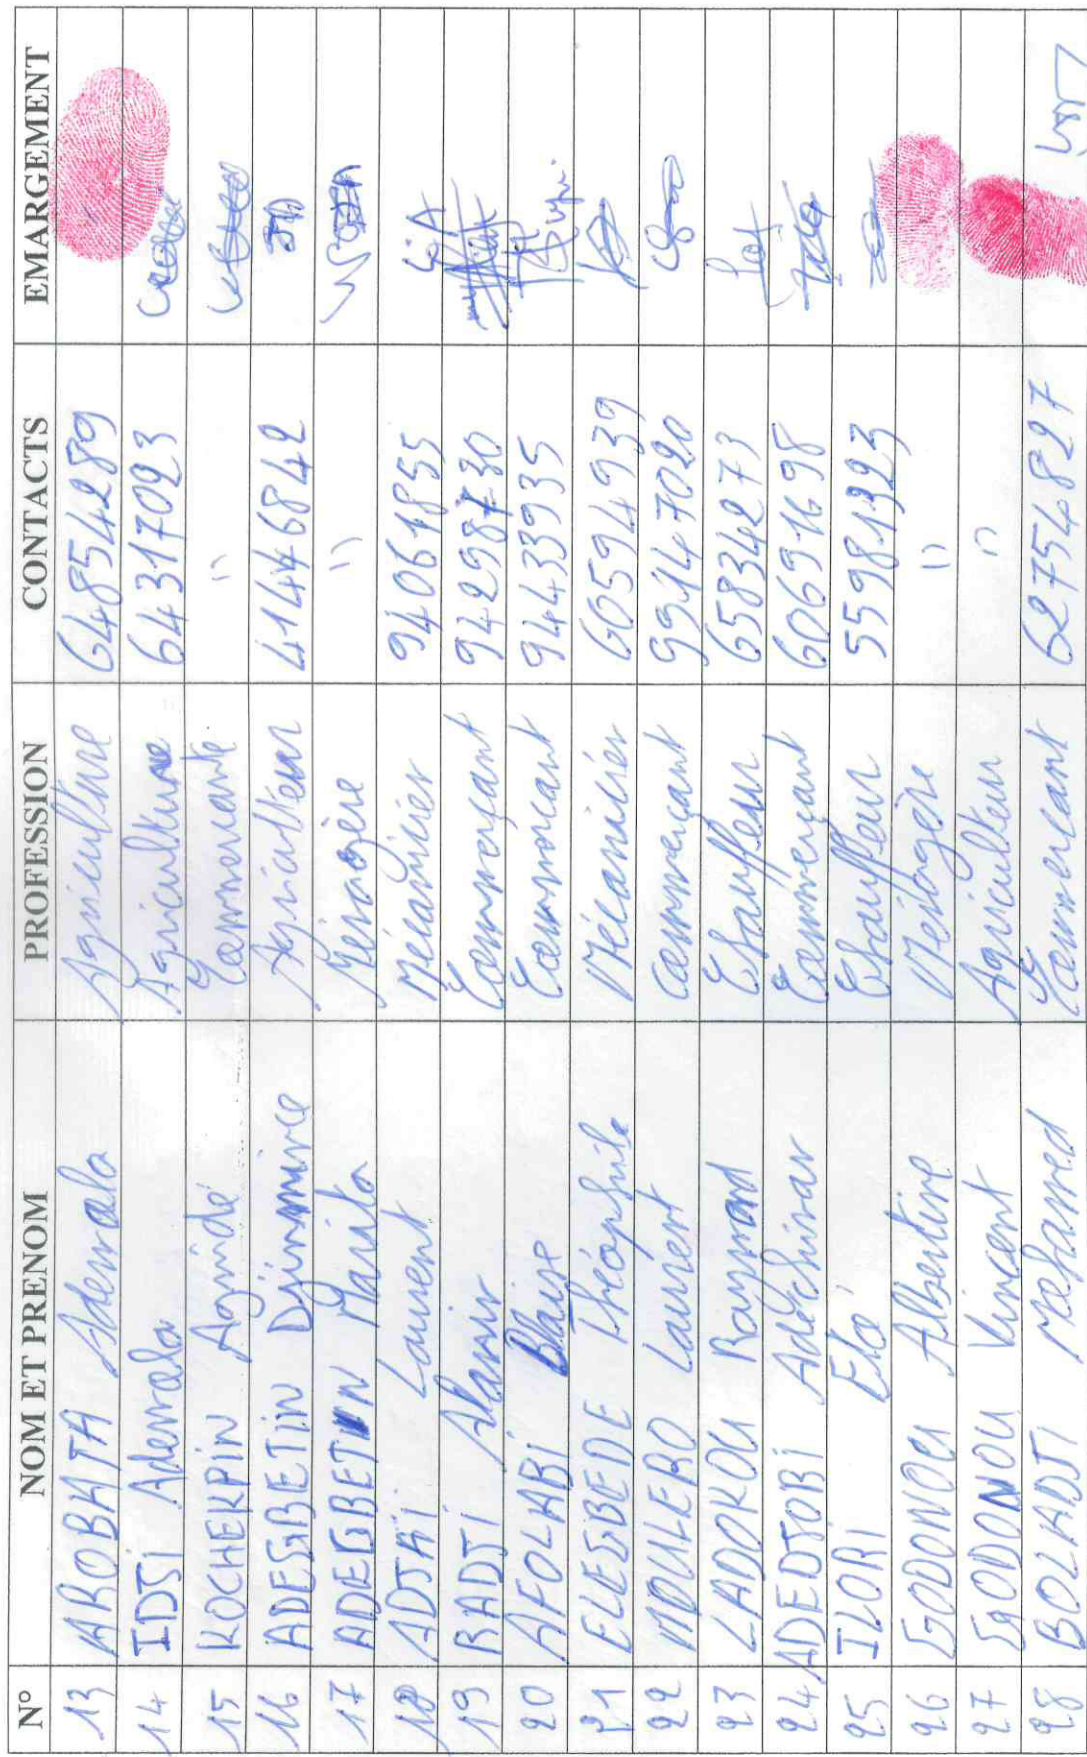 N° NOM ET PRENOM PROFESSION CONTACTS EMARGEMENT
13 AROBATA Aderoola Agriculture 64854289
14 IDJi Aderoola Agriculture 64317093
15 KOCHEKPiN Aginidé Commerçante "
16 ADEGBETiN Djimmince Agriculteur 41446842
17 ADEGBETiN Marita Ménagère "
18 ADJAi Laurent Mécanicier 94061855
19 RADJi Alanir Commerçant 94298730
20 AFOLABi Blaise Commercant 94433935
21 ELEGBEDE Théophile Mécanicien 60594939
22 MOULERO Laurent Commerçant 99147020
23 LADOKOU Raymond Chauffeur 65834273
24 ADEDJOBI Adéchinar Commerçant 60691698
25 ILORI Elo' Chauffeur 55981323
26 GODONOU Albertine Ménagère "
27 GODONOU Vincent Agriculteur "
28 BOLADJI Mohamed Commercant 62754827